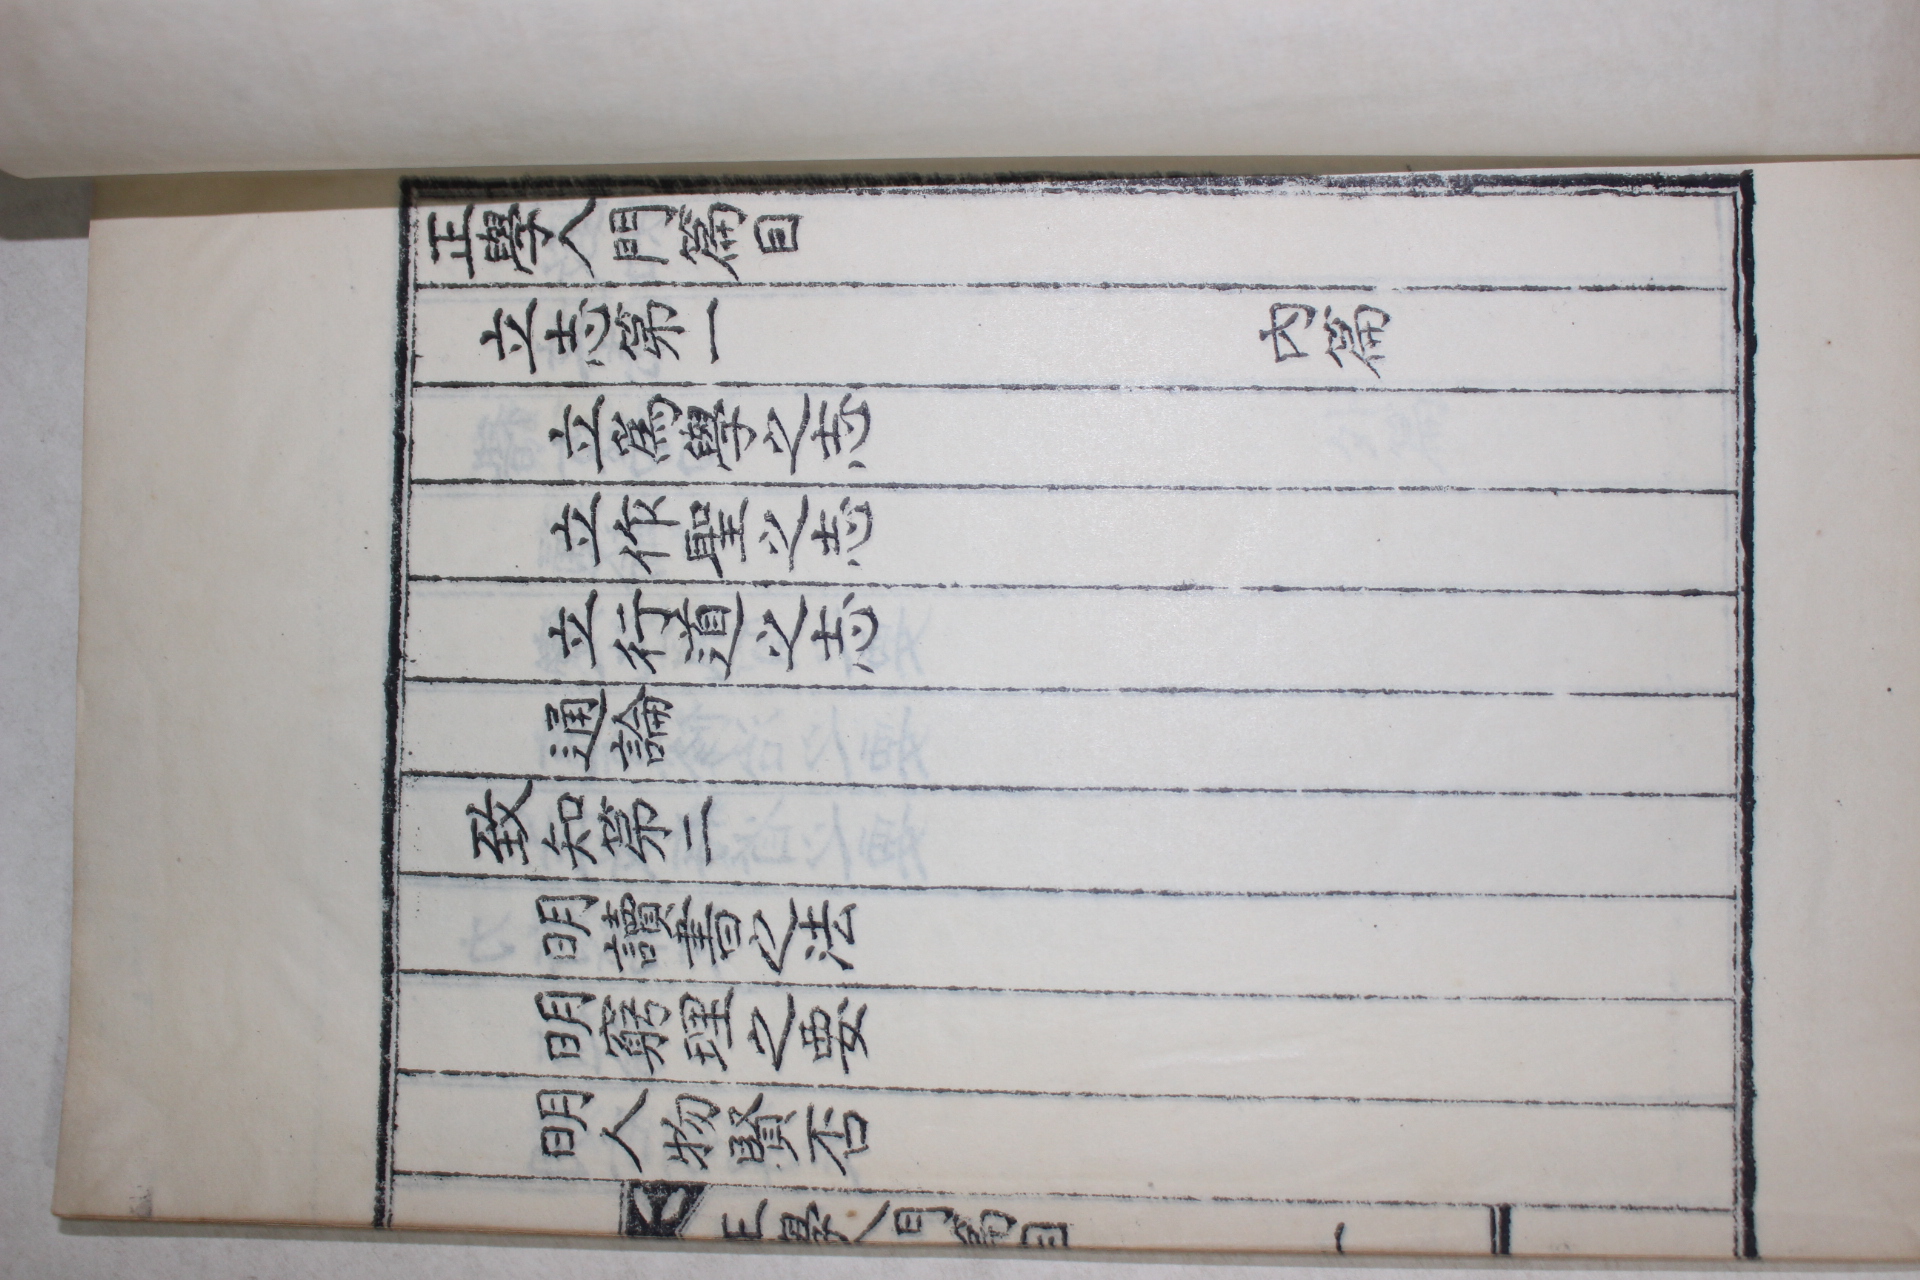 正學入門篇目
立志第一 內篇
立爲學之志
立作聖之志
立行道之志
通論
致知第二
明讀書之法
明窮理之要
明人物賢否
正學入門篇目 一